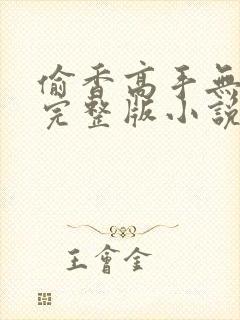 偷香高手無
完整版小說
王會全